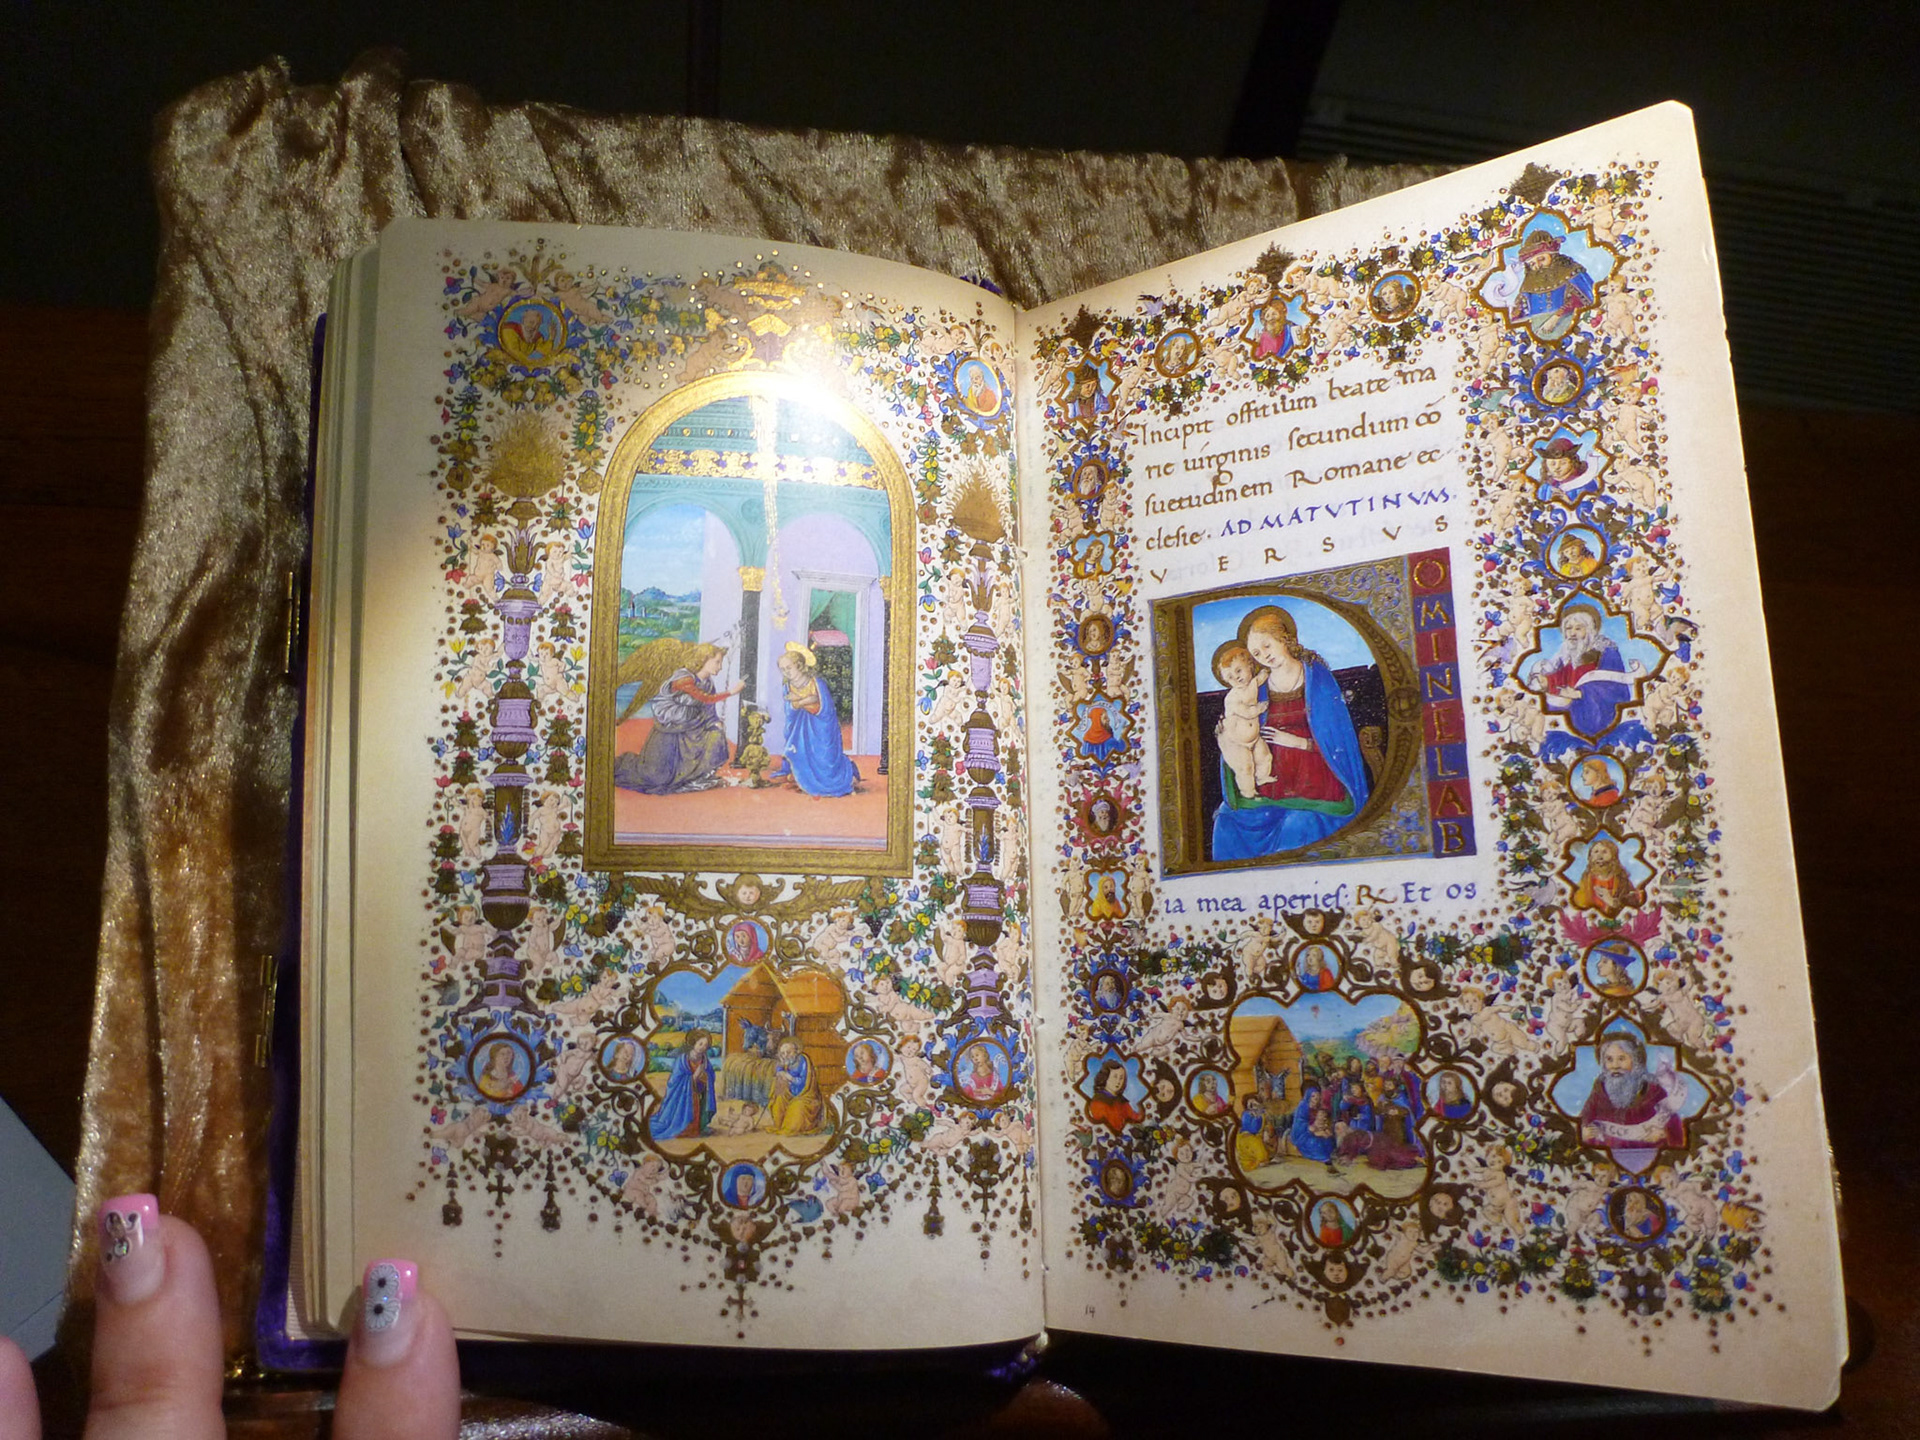 Incipit offitium beate ma
rie uirginis secundum cō
suetudinem Romane ec
clesie. AD MATVTINVM.
VERSVS
D
OMINE LAB
ia mea aperies. ℟ Et os
14